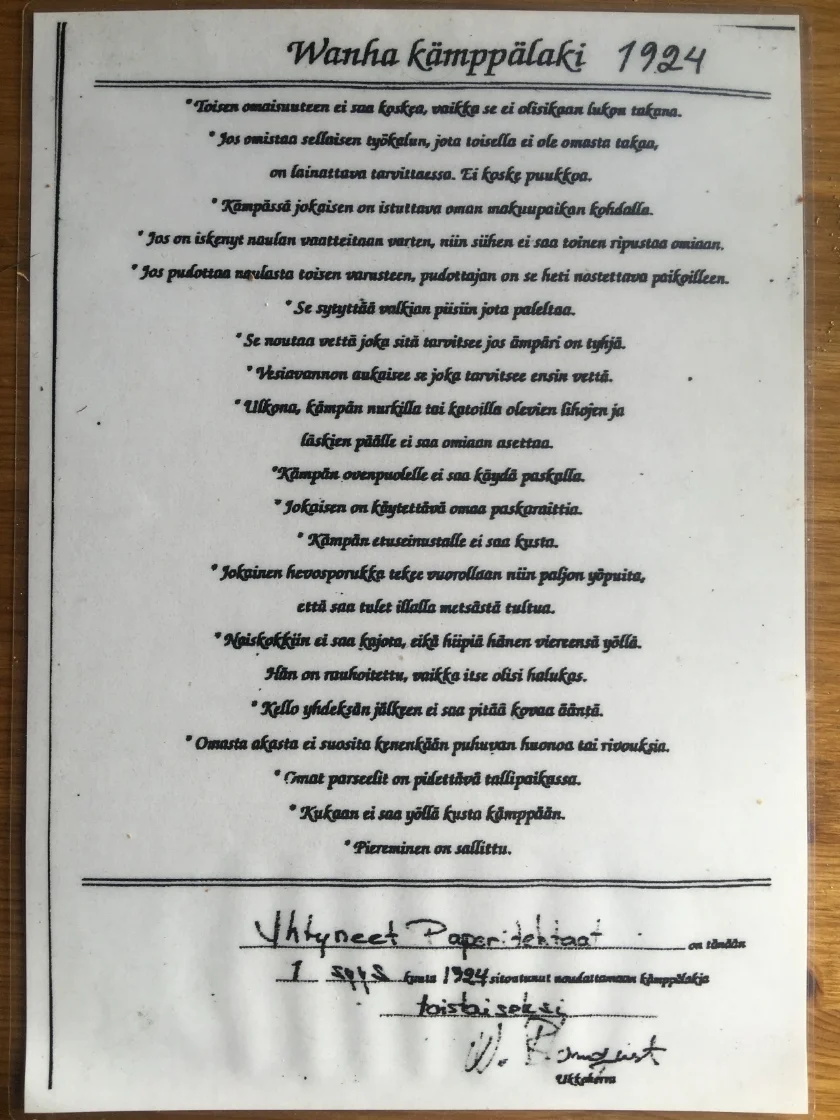 Wanha kämppälaki 1924
* Toisen omaisuuteen ei saa koskea, vaikka se ei olisikaan lukon takana.
* Jos omistaa sellaisen työkalun, jota toisella ei ole omasta takaa,
on lainattava tarvittaessa. Ei koske puukkoa.
* Kämpässä jokaisen on istuttava oman makuupaikan kohdalla.
* Jos on iskenyt naulan vaatteitaan varten, niin siihen ei saa toinen ripustaa omiaan.
* Jos pudottaa naulasta toisen varusteen, pudottajan on se heti nostettava paikoilleen.
* Se sytyttää valkian piisiin jota paleltaa.
* Se noutaa vettä joka sitä tarvitsee jos ämpäri on tyhjä.
* Vesiavannon aukaisee se joka tarvitsee ensin vettä.
* Ulkona, kämpän nurkilla tai katoilla olevien lihojen ja
läskien päälle ei saa omiaan asettaa.
*Kämpän ovenpuolelle ei saa käydä paskalla.
* Jokaisen on käytettävä omaa paskaraittia.
* Kämpän etuseinustalle ei saa kusta.
* Jokainen hevosporukka tekee vuorollaan niin paljon yöpuita,
että saa tulet illalla metsästä tultua.
* Naiskokkiin ei saa kajota, eikä hiipiä hänen viereensä yöllä.
Hän on rauhoitettu, vaikka itse olisi halukas.
* Kello yhdeksän jälkeen ei saa pitää kovaa ääntä.
* Omasta akasta ei suosita kenenkään puhuvan huonoa tai rivouksia.
* Omat parseelit on pidettävä tallipaikassa.
* Kukaan ei saa yöllä kusta kämppään.
* Piereminen on sallittu.
Yhtyneet Paperitehtaat on tänään
1 syys kuuta 1924 sitoutunut noudattamaan kämppälakja
toistaiseksi
W.
Ukkoherra